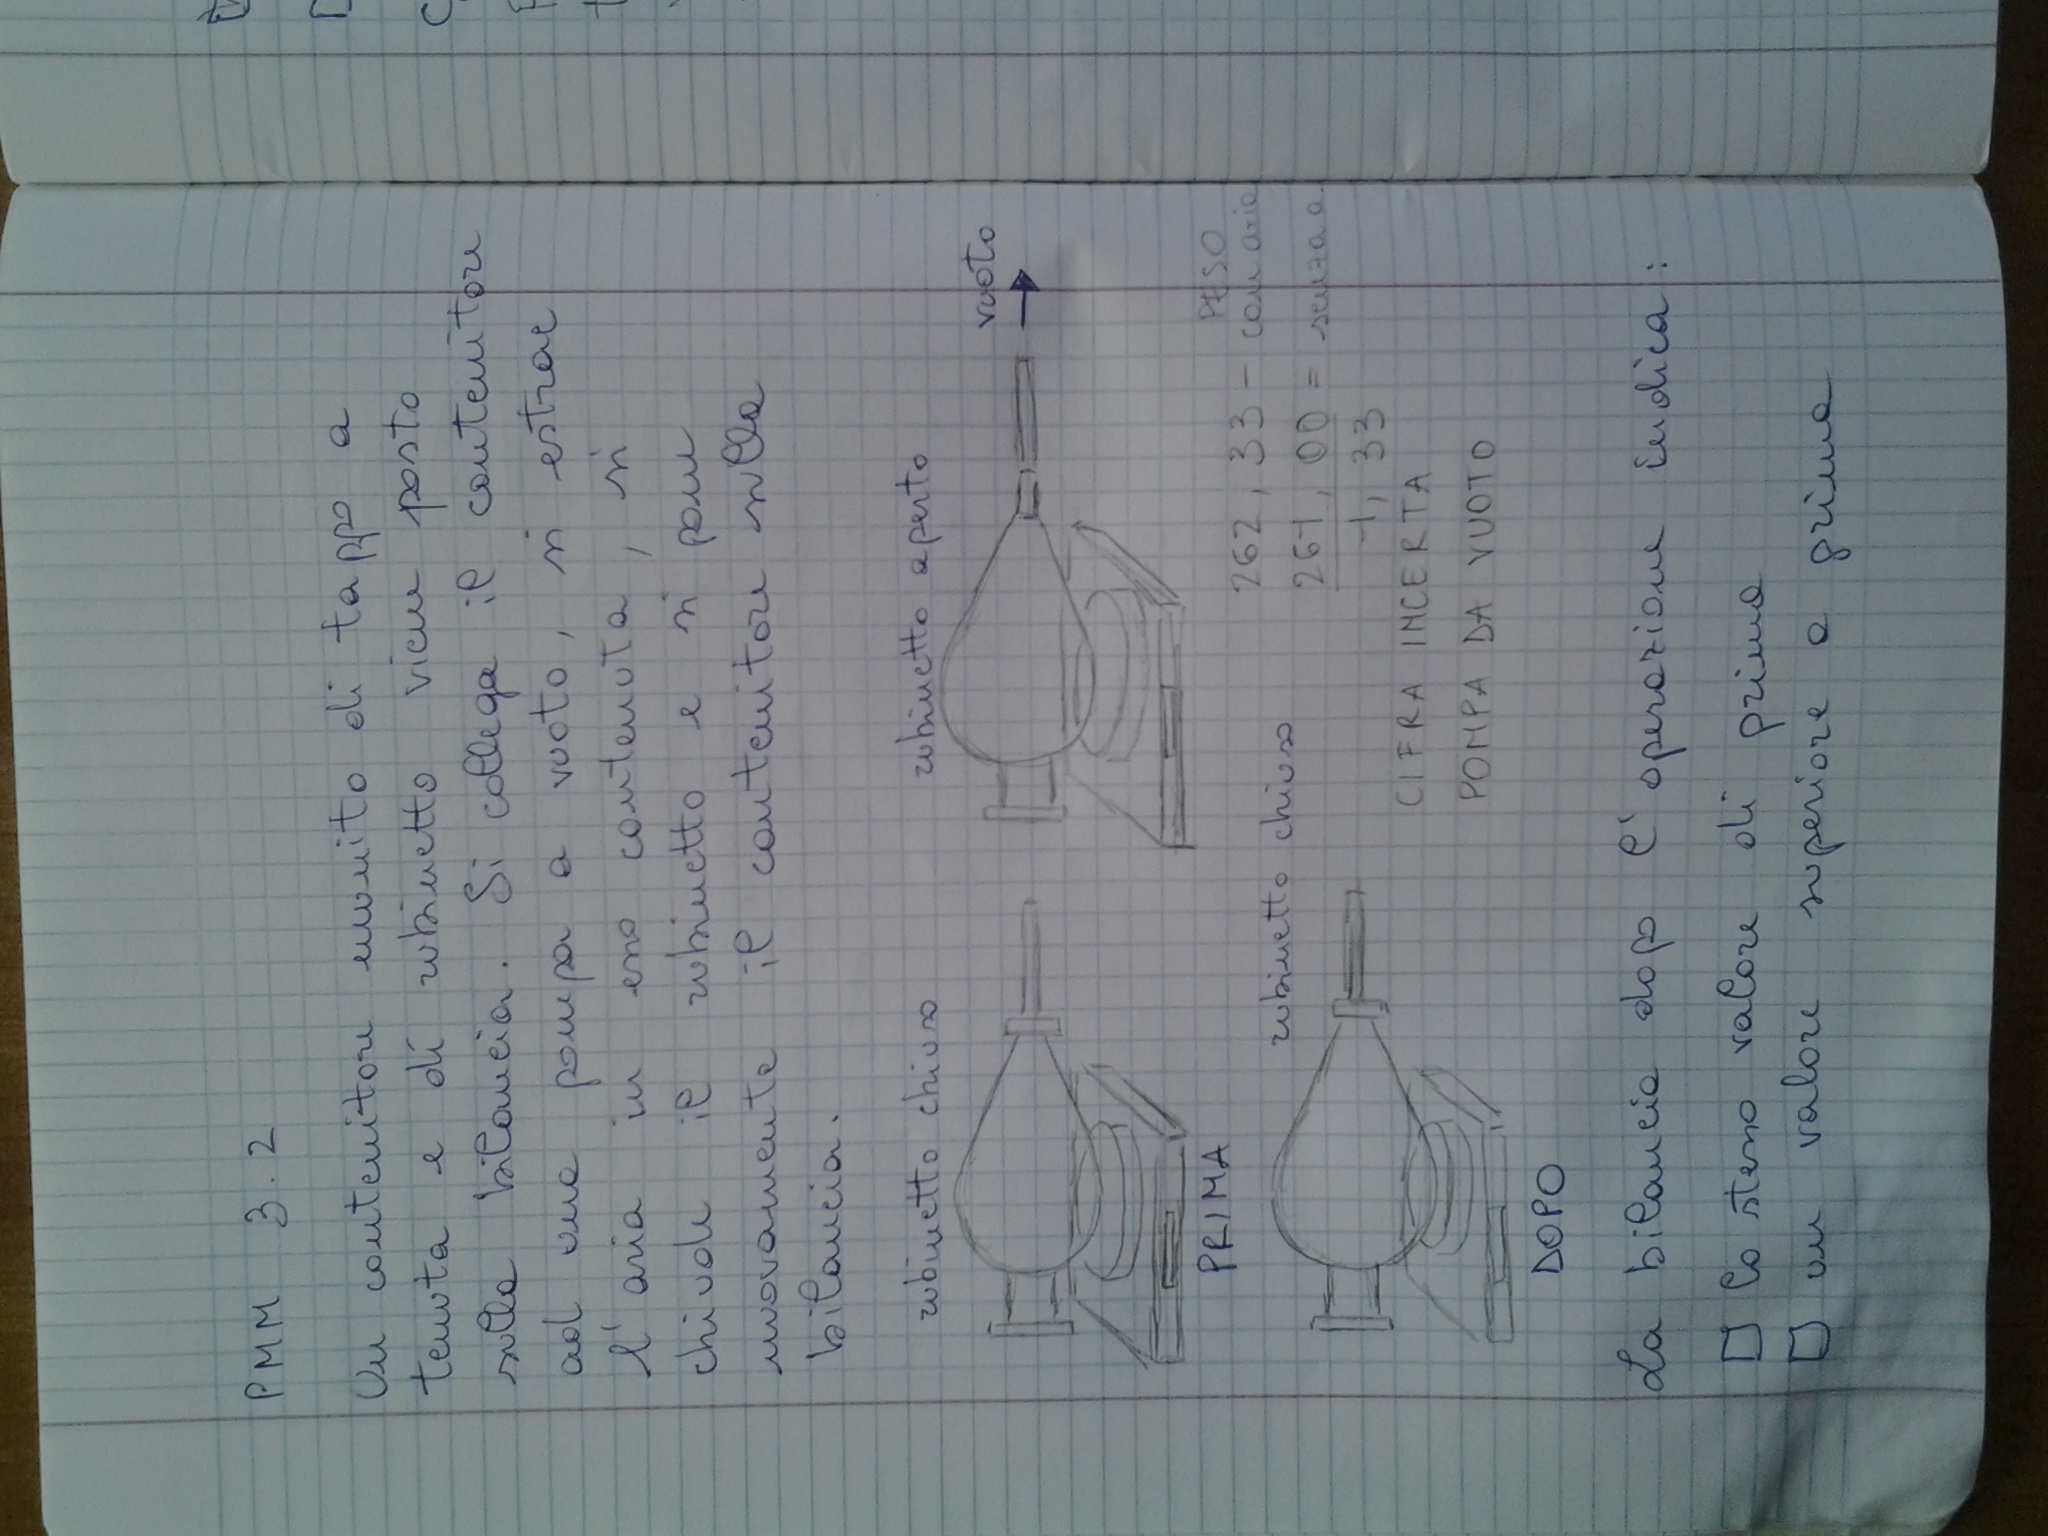 PMM 3.2
Un contenitore munito di tappo a
tenuta e di rubinetto viene posto
sulla bilancia. Si collega il contenitore
ad una pompa a vuoto, si estrae
l'aria in esso contenuta, si
chiude il rubinetto e si pone
nuovamente il contenitore sulla
bilancia.
rubinetto chiuso
rubinetto aperto
vuoto
PRIMA
PESO
262,33 - con aria
261,00 = senza a.
1,33
rubinetto chiuso
CIFRA INCERTA
POMPA DA VUOTO
DOPO
La bilancia dopo l'operazione indica:
□ lo stesso valore di prima
□ un valore superiore a prima